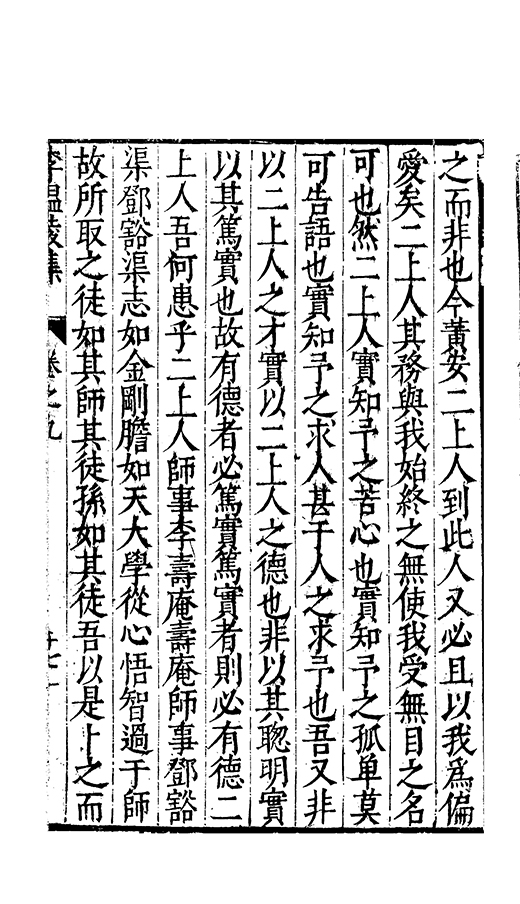 之而非也今黄安二上人到此人又必且以我為偏
愛矣二上人其務與我始終之無使我受無目之名
可也然二上人實知予之苦心也實知予之孤单莫
可告語也實知予之求人甚于人之求予也吾又非
以二上人之才實以二上人之德也非以其聰明實
以其篤實也故有德者必篤實篤實者則必有德二
上人吾何患乎二上人師事李壽庵壽庵師事鄧豁
渠鄧豁渠志如金剛膽如天大學從心悟智過于師
故所取之徒如其師其徒孫如其徒吾以是卜之而
李温陵集 卷之九